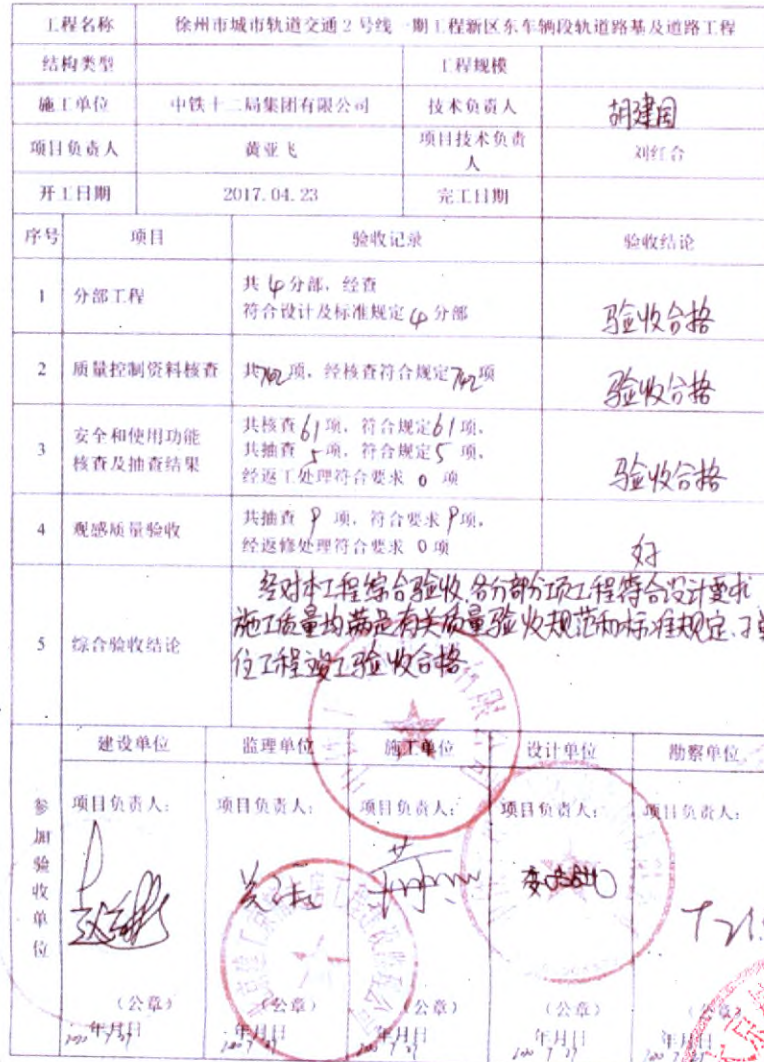 工程名称 徐州市城市轨道交通2号线一期工程新区东车辆段轨道路基及道路工程
结构类型 工程规模
施工单位 中铁十二局集团有限公司 技术负责人 胡建国
项目负责人 黄亚飞 项目技术负责人 刘红合
开工日期 2017.04.23 完工日期
序号 项目 验收记录 验收结论
1 分部工程 共4分部,经查
符合设计及标准规定4分部 验收合格
2 质量控制资料核查 共762项,经核查符合规定762项 验收合格
3 安全和使用功能
核查及抽查结果
共核查61项,符合规定61项,
共抽查5项,符合规定5项,
经返工处理符合要求 0 项 验收合格
4 观感质量验收 共抽查9项,符合要求9项,
经返修处理符合要求 0项 好
5 综合验收结论
经对本工程综合验收,各分部分项工程符合设计要求
施工质量均满足有关质量验收规范和标准规定,
位工程竣工验收合格
参加验收单位
建设单位 监理单位 施工单位 设计单位 勘察单位
项目负责人: 项目负责人: 项目负责人: 项目负责人: 项目负责人:
(公章) (公章) (公章) (公章) (公章)
年月日 年月日 年月日 年月日 年月日